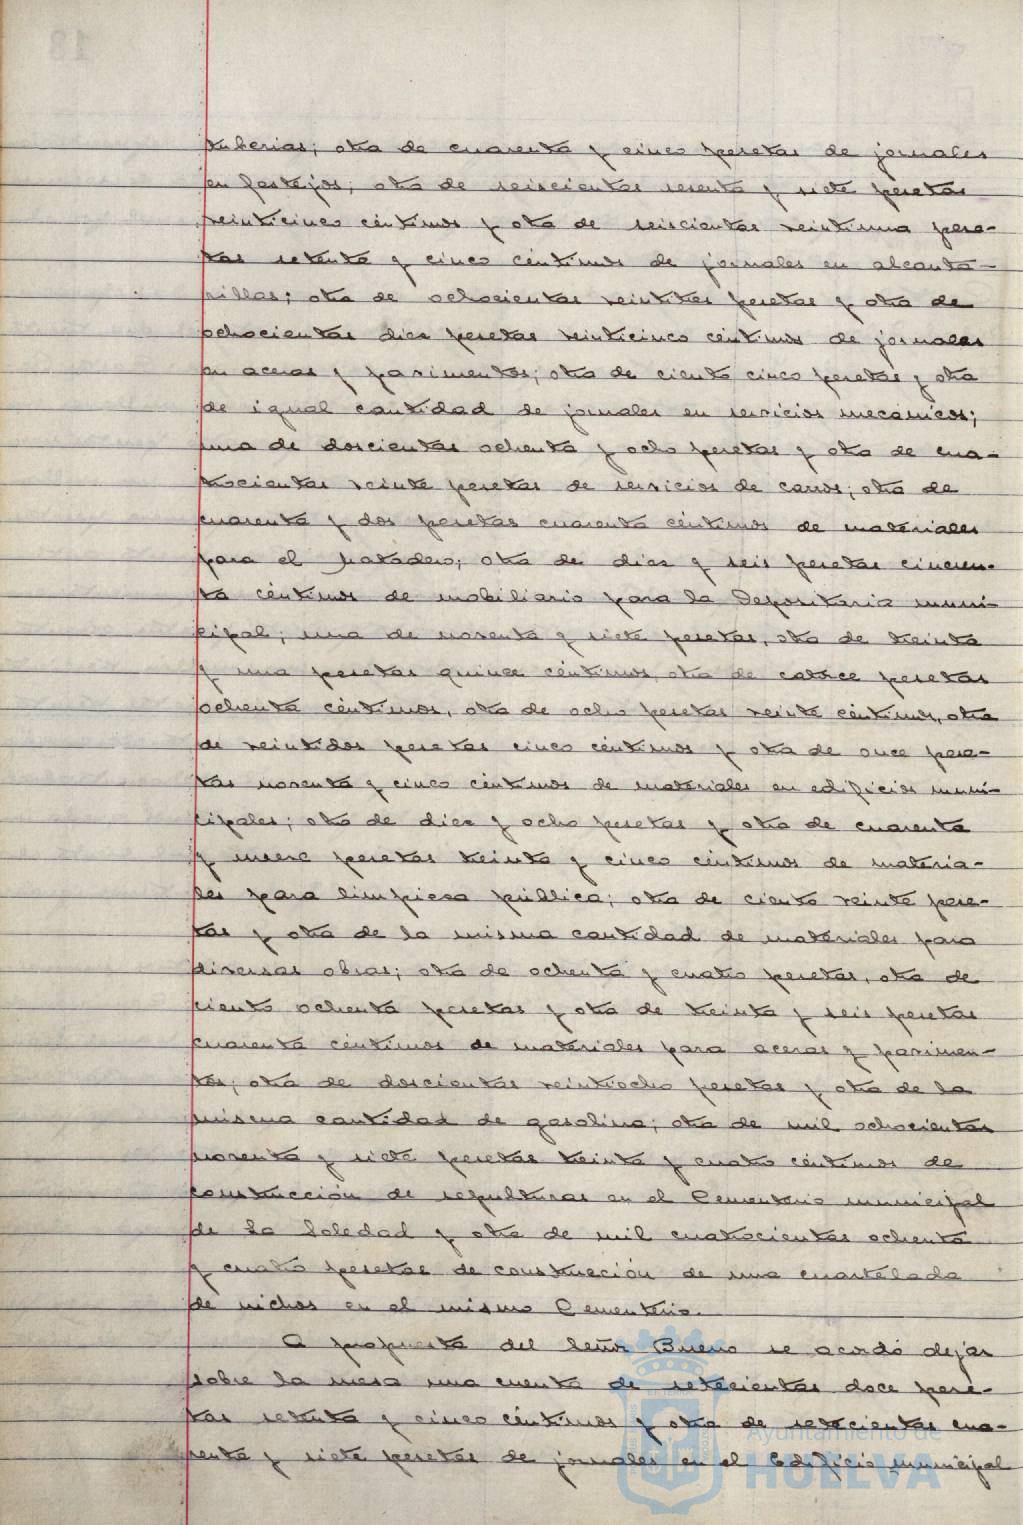 tuberias; otra de cuarenta y cinco pesetas de jornales
en festejos; otra de seiscientas sesenta y siete pesetas
veinticinco céntimos y otra de seiscientas veintiuna pese-
tas setenta y cinco céntimos de jornales en alcanta-
rillas; otra de ochocientas veintitres pesetas y otra de
ochocientas diez pesetas veinticinco céntimos de jornales
en aceras y pavimentos; otra de ciento cinco pesetas y otra
de igual cantidad de jornales en servicios mecánicos;
una de doscientas ochenta y ocho pesetas y otra de cua-
trocientas veinte pesetas de servicios de carros; otra de
cuarenta y dos pesetas cuarenta céntimos de materiales
para el Matadero; otra de diez y seis pesetas cincuen-
ta céntimos de mobiliario para la Depositaria muni-
cipal; una de noventa y siete pesetas, otra de treinta
y una pesetas quince céntimos, otra de catorce pesetas
ochenta céntimos, otra de ocho pesetas veinte céntimos, otra
de veintidos pesetas cinco céntimos y otra de once pese-
tas noventa y cinco céntimos de materiales en edificios muni-
cipales; otra de diez y ocho pesetas y otra de cuarenta
y nueve pesetas treinta y cinco céntimos de materia-
les para limpieza pública; otra de ciento veinte pese-
tas y otra de la misma cantidad de materiales para
diversas obras; otra de ochenta y cuatro pesetas, otra de
ciento ochenta pesetas y otra de treinta y seis pesetas
cuarenta céntimos de materiales para aceras y pavimen-
tos; otra de doscientas veintiocho pesetas y otra de la
misma cantidad de gasolina; otra de mil ochocientas
noventa y siete pesetas treinta y cuatro céntimos de
construcción de sepulturas en el Cementerio municipal
de La Soledad y otra de mil cuatrocientas ochenta
y cuatro pesetas de construcción de una cuartelada
de nichos en el mismo Cementerio.
A propuesta del Señor Bueno se acordó dejar
sobre la mesa una cuenta de setecientas doce pese-
tas setenta y cinco céntimos y otra de setecientas cua-
renta y siete pesetas de jornales en el Edificio municipal
Ayuntamiento de
HUELVA